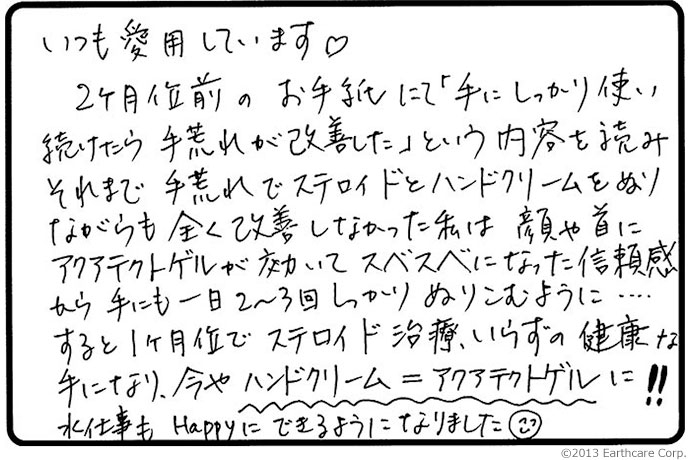 いつも愛用しています♡
2ヶ月位前の お手紙にて「手にしっかり使い
続けたら 手荒れが改善した」という内容を読み
それまで 手荒れでステロイドとハンドクリームをぬり
ながらも 全く改善しなかった私は 顔や首に
アクアテクトゲルが効いて スベスベになった信頼感
から 手にも一日2〜3回しっかり ぬりこむように‥‥
すると1ヶ月位で ステロイド治療、いらずの 健康な
手になり、今や ハンドクリーム=アクアテクトゲルに!!
水仕事も Happyに できるようになりました
©2013 Earthcare Corp.